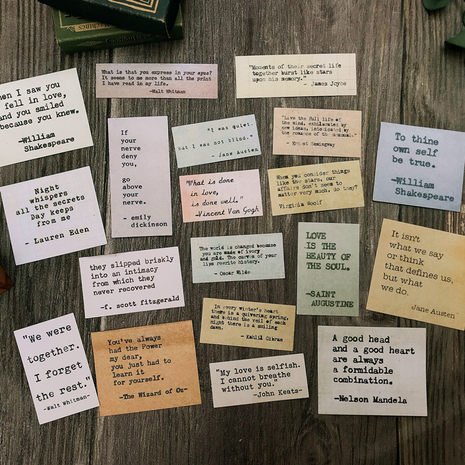 What is that you express in your eyes?
It seems to me more than all the print
I have read in my life.
-Walt Whitman
"Moments of their secret life
together burst like stars
upon his memory."
- James Joyce
when I saw you
I fell in love,
and you smiled
because you knew.
-William
Shakespeare
If
your
nerve
deny
you,
go
above
your
nerve.
- emily
dickinson
"I was quiet,
but I was not blind."
- Jane Austen
"Love the full life of
the mind, exhilarated by
new ideas, intoxicated by
the romance of the unusual."
- Ernest Hemingway
To thine
own self
be true.
-William
Shakespeare
Night
whispers
all the secrets
Day keeps
from me
- Lauren Eden
"What is done
in love,
is done well."
-Vincent Van Gogh
When you consider things
like the stars, our
affairs don't seem to
matter very much, do they?
Virginia Woolf
they slipped briskly
into an intimacy
from which they
never recovered
-f. scott fitzgerald
The world is changed because
you are made of ivory
and gold. The curves of your
lips rewrite history.
- Oscar Wilde
LOVE
IS THE
BEAUTY OF
THE SOUL.
-SAINT
AUGUSTINE
It isn't
what we say
or think
that defines us,
but what
we do.
Jane Austen
"We were
together.
I forget
the rest."
-Walt Whitman-
You've always
had the Power
my dear,
you just had to
learn it
for yourself.
-The Wizard of Oz-
In every winter's heart
there is a quivering spring,
and behind the veil of each
night there is a smiling
dawn.
- Kahlil Gibran
"My love is selfish.
I cannot breathe
without you."
-John Keats-
A good head
and a good heart
are always
a formidable
combination.
-Nelson Mandela